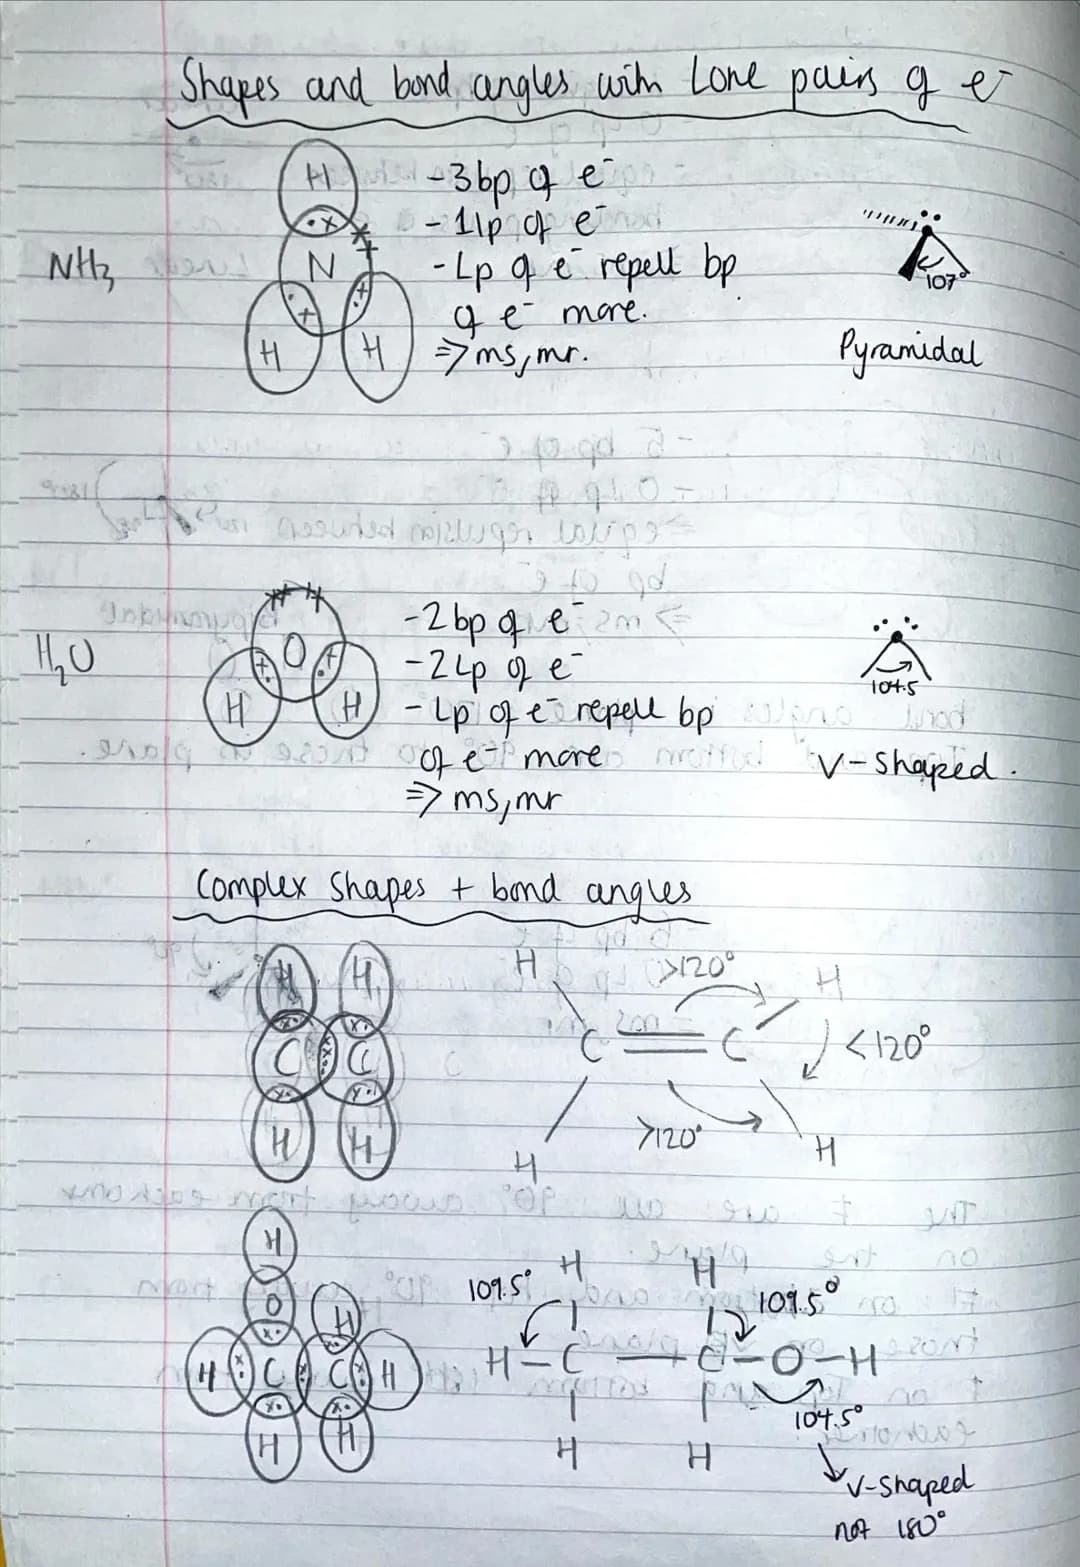 Shapes and bond angles with Lone pairs of e⁻
NH₃
H
N
H H
-3bp of e⁻
-1lp of e⁻
-Lp of e⁻ repell bp
of e⁻ more.
⇒ ms, mr.
107°
Pyramidal
H₂O
O
H H
-2bp of e⁻
-2Lp of e⁻
-Lp of e⁻ repell bp
of e⁻ more
⇒ ms, mr
104.5
V-shaped.
Complex Shapes + bond angles
H H
C C
H H
H >120° H
C = C <120°
>120°
H H
H
O H
H C C H
H H
109.5° H H 109.5°
H-C-C-O-H
104.5°
H H
V-shaped
not 180°